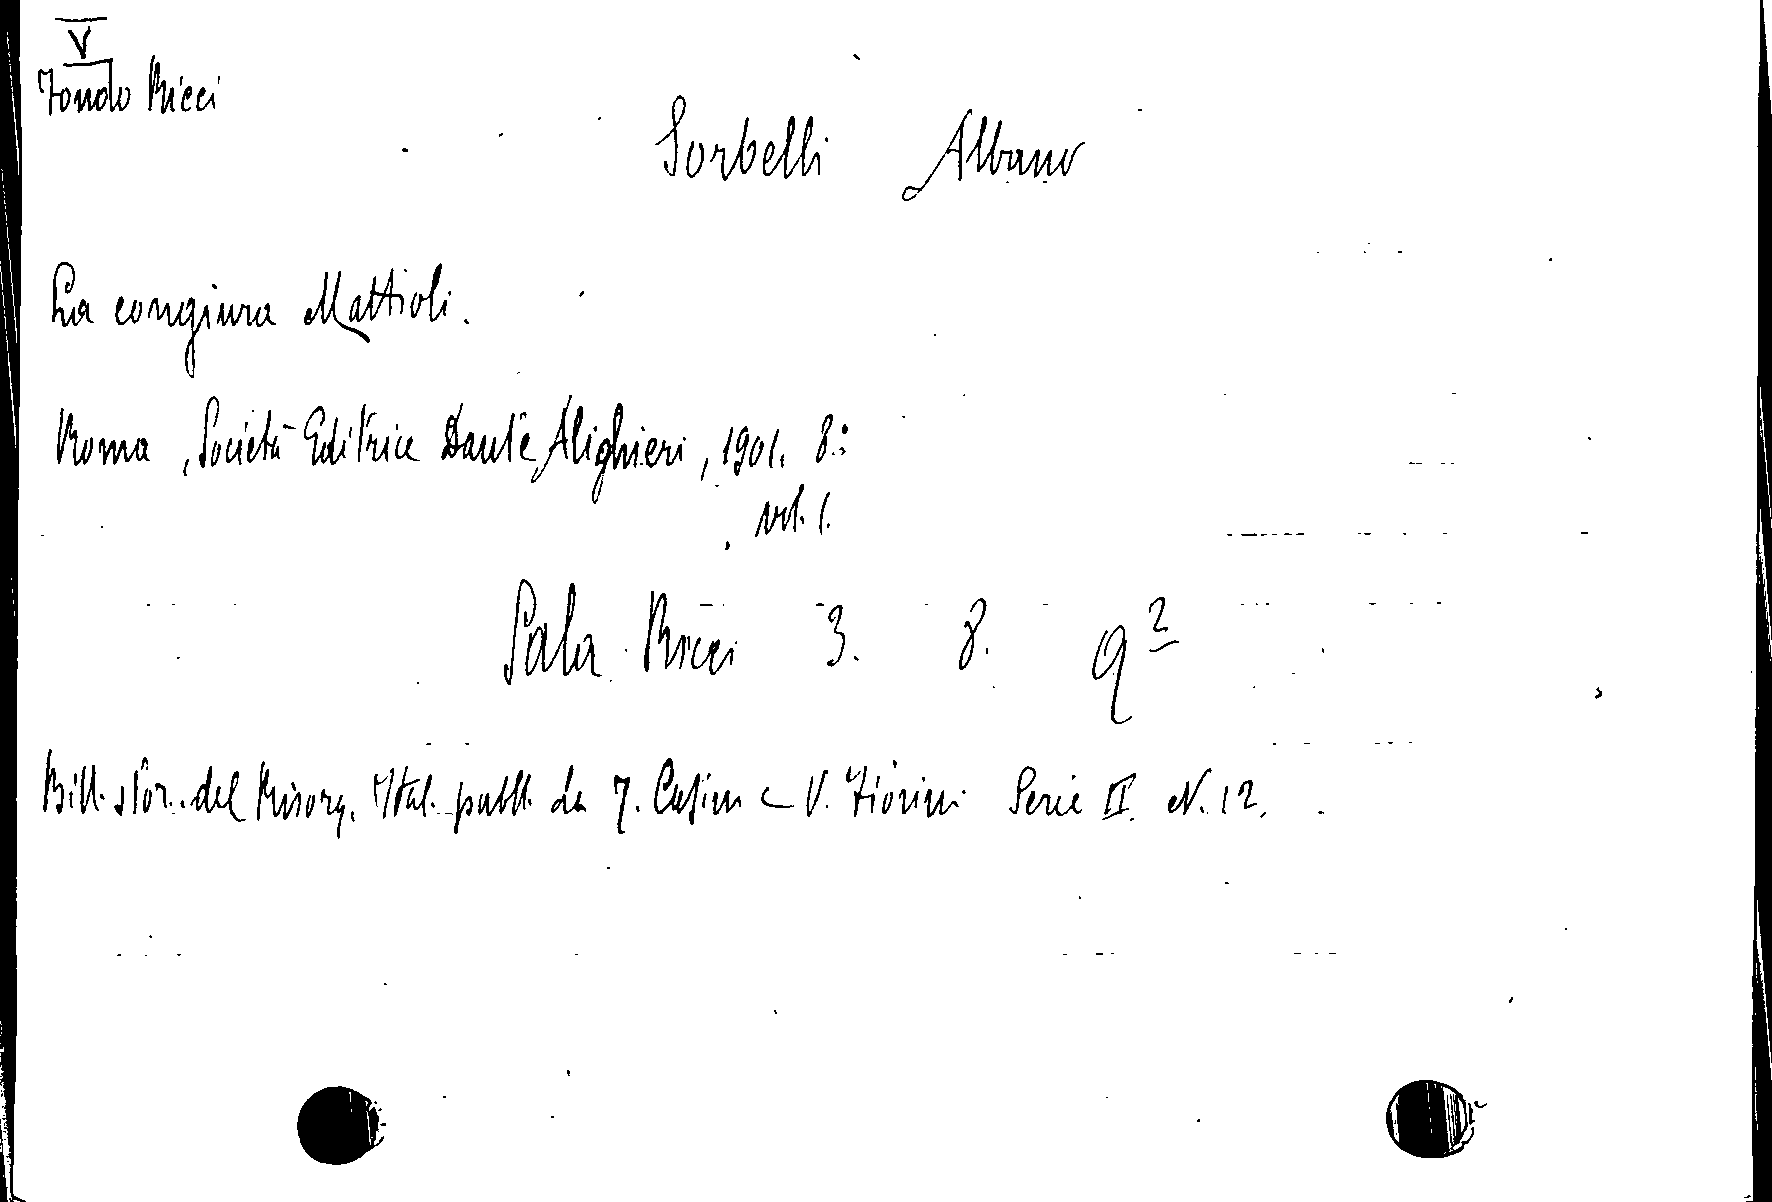 V
Fondo Ricci
Sorbelli Albano
La congiura Mattioli.
Roma, Società Editrice Dante Alighieri, 1901. 8.:
vol. 1.
Sala Ricci 3. 8. q 2
Bibl. stor. del Risorg. Ital. pubbl. da T. Casini e V. Fiorini Serie II. N. 12.